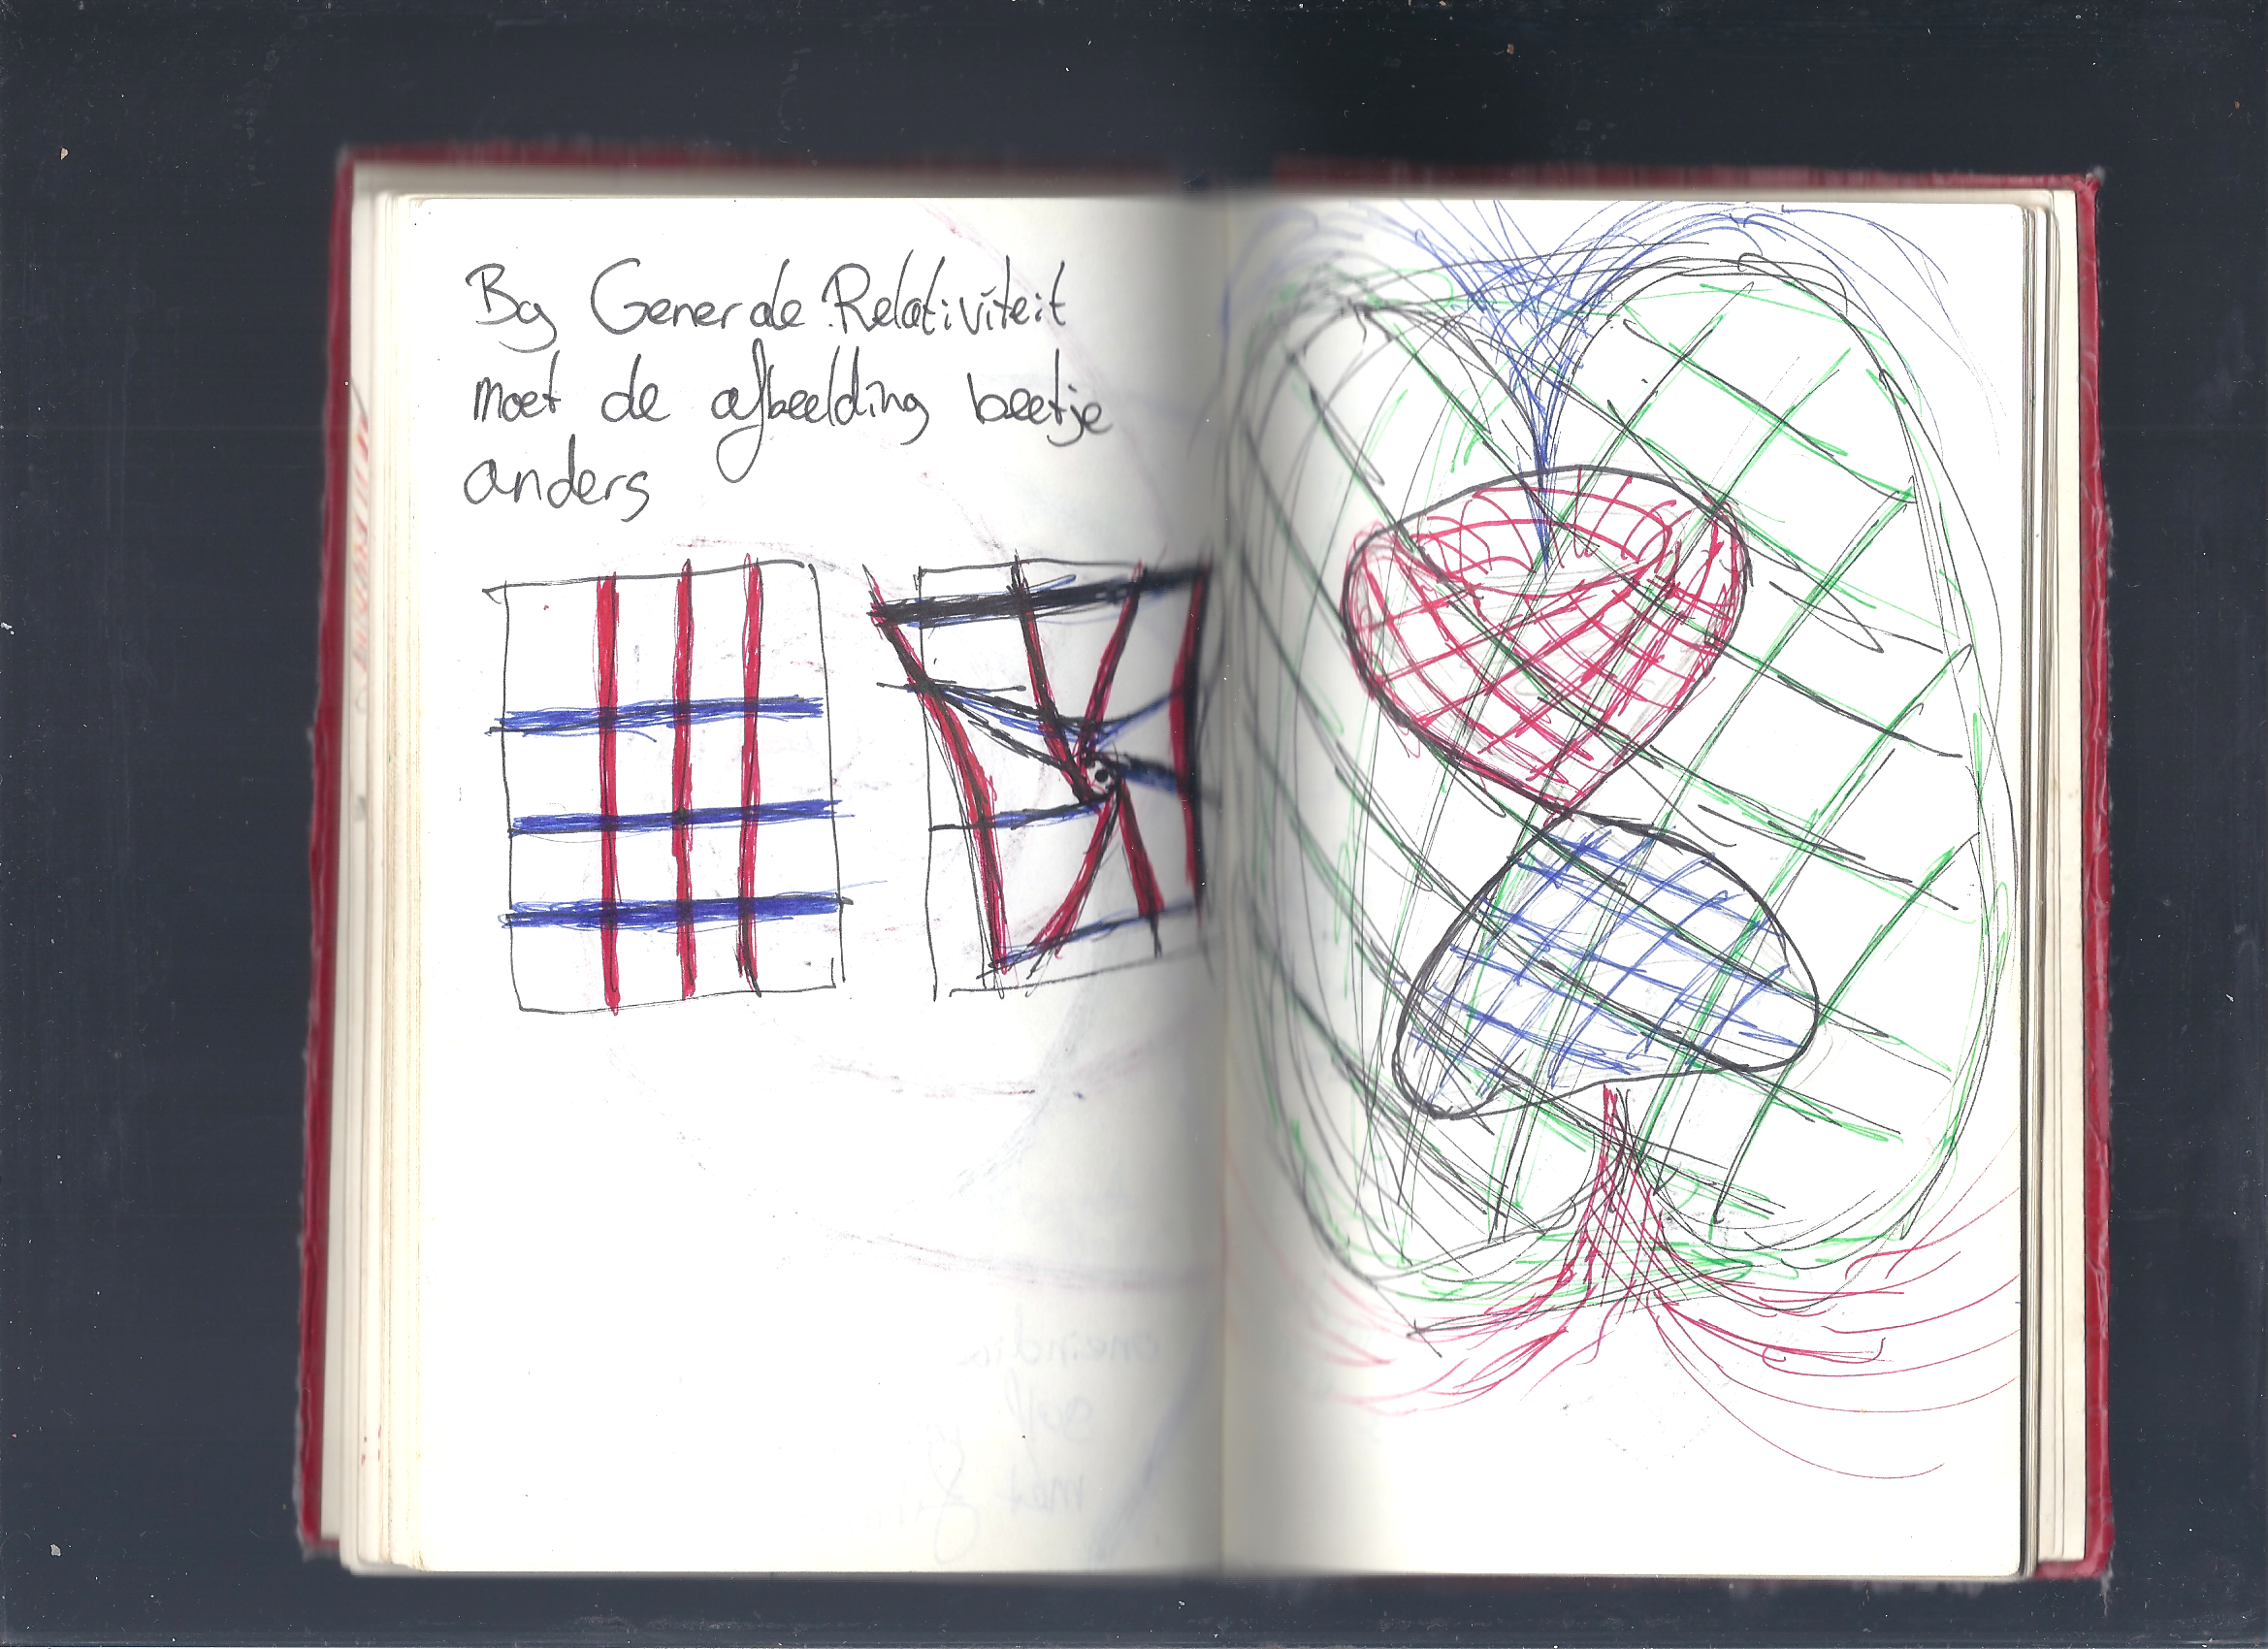 Bij Generale Relativiteit
moet de afbeelding beetje
anders